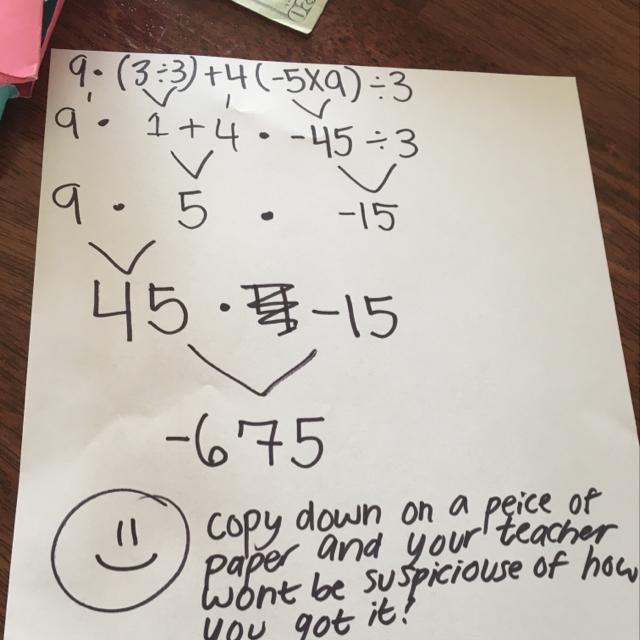 9 · (3÷3)+4(-5x9)÷3
9 · 1+4 · -45÷3
9 · 5 · -15
45 · -15
-675
copy down on a peice of
paper and your teacher
wont be suspiciouse of how
you got it!